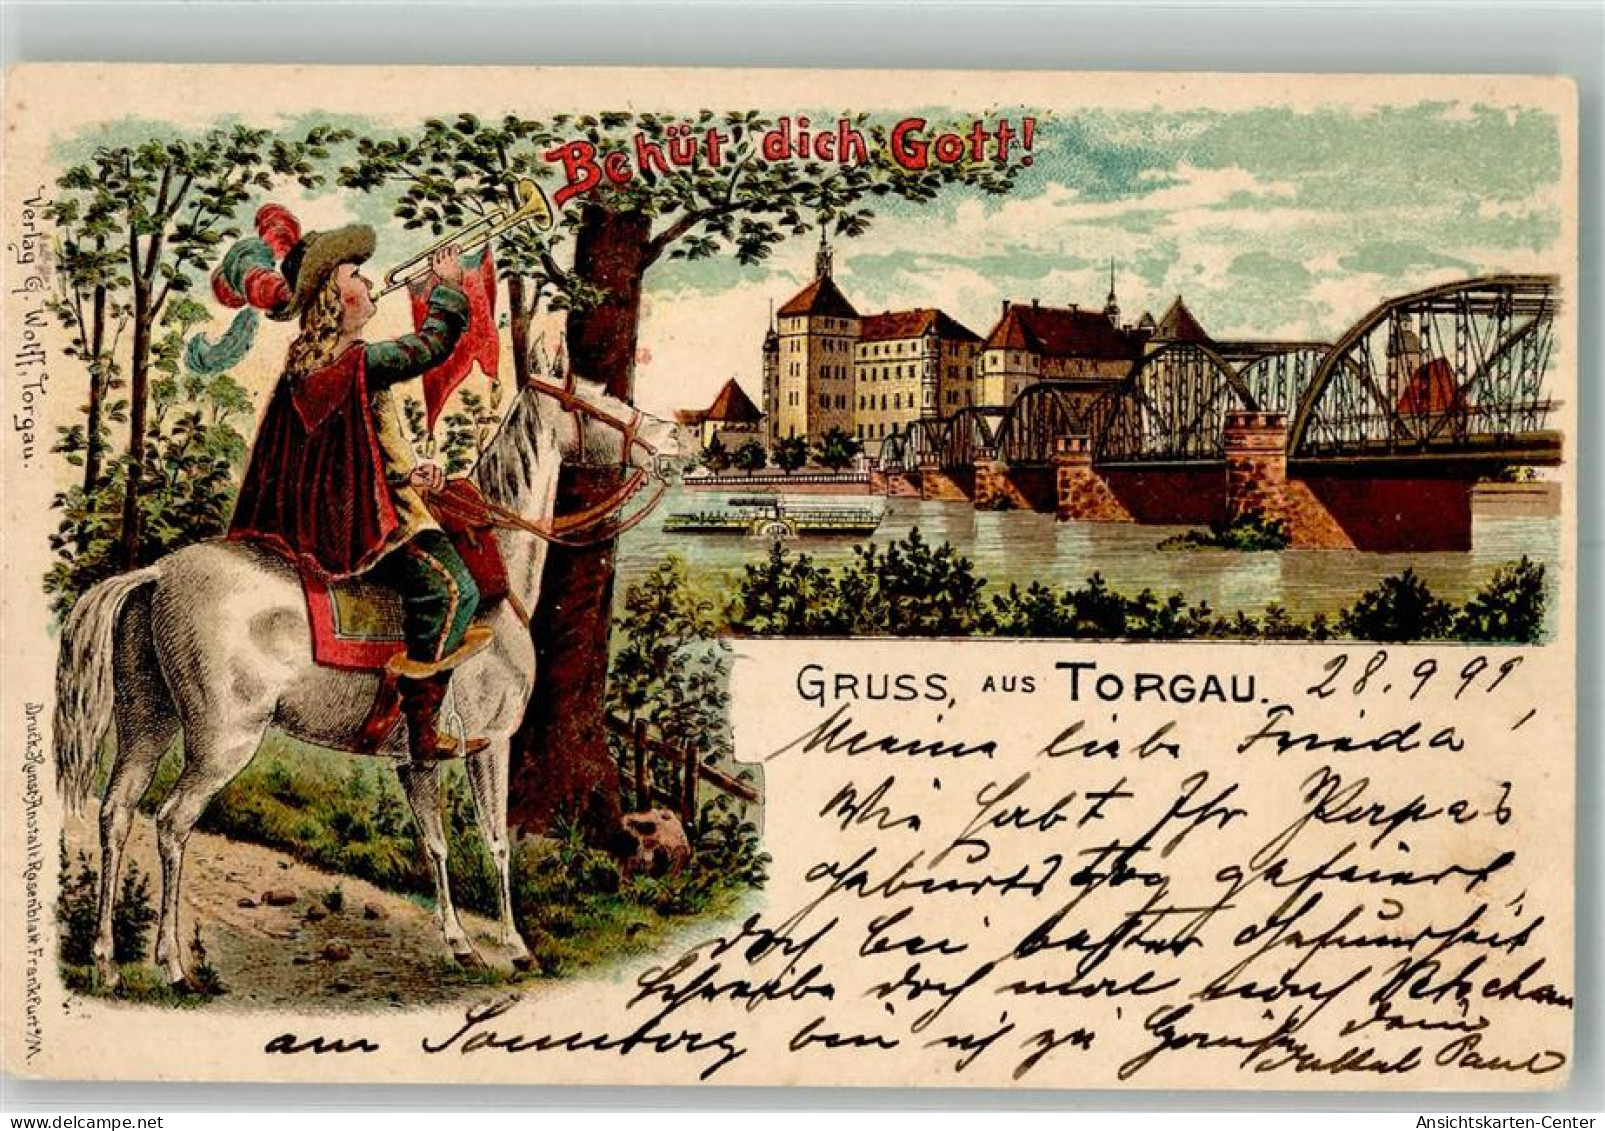 Behüt dich Gott!
Verlag G. Wolff, Torgau.
Druck. Kunst-Anstalt Rosenblatt Frankfurt a/M.
GRUSS AUS TORGAU. 28.9 99
Meine liebe Frieda!
Wie habt Ihr Papa's
Geburtstag gefeiert,
doch bei bester Gesundheit
Schreibe doch mal nach
am Sonntag bin ich zu
Dein
Onkel Paul
Ansichtskarten-Center